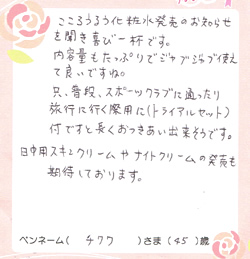 こころうるう化粧水発売のお知らせ
を聞き喜び一杯です。
内容量もたっぷりでジャブジャブ使え
て良いですね。
只、普段、スポーツクラブに通ったり
旅行に行く際用に(トライアルセット)
付ですと長くおつきあい出来そうです。
日中用スキンクリームやナイトクリームの発売も
期待しております。
ペンネーム( チワワ )さま(45)歳